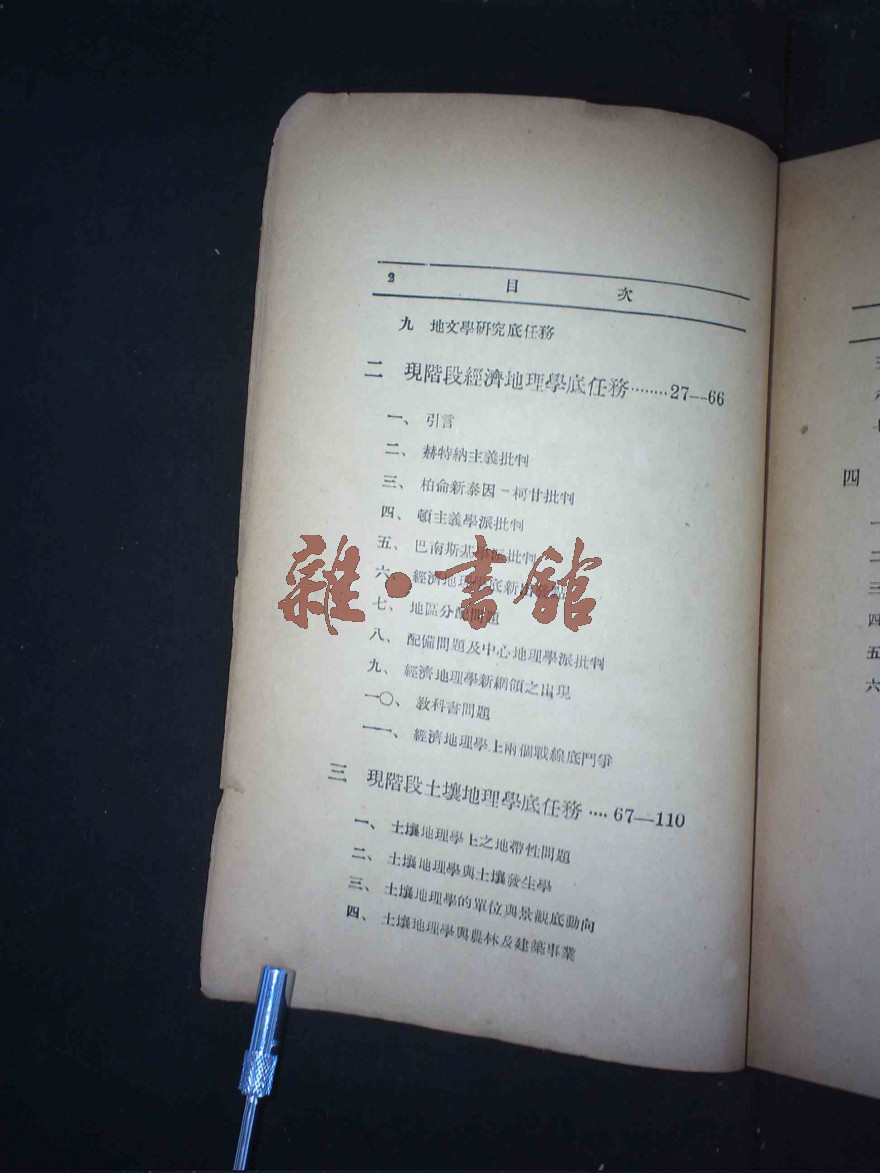 2 目 次
九 地文學研究底任務
二 現階段經濟地理學底任務········27—66
一、引言
二、赫特納主義批判
三、柏侖新泰因－柯甘批判
四、頓主義學派批判
五、巴南斯基學派批判
六、經濟地理學底新
七、地區分配問題
八、配備問題及中心地理學派批判
九、經濟地理學新綱領之出現
一〇、教科書問題
一一、經濟地理學上兩個戰線底鬥爭
三 現階段土壤地理學底任務····67—110
一、土壤地理學上之地帶性問題
二、土壤地理學與土壤發生學
三、土壤地理學的單位與景觀底動向
四、土壤地理學與農林及建築事業
雜·書館
四
一
二
三
四
五
六